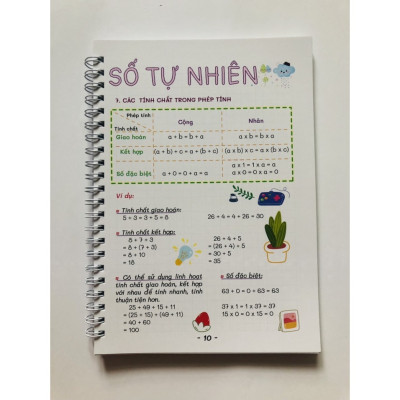 SỐ TỰ NHIÊN
1. CÁC TÍNH CHẤT TRONG PHÉP TÍNH
Phép tính
Tính chất
Cộng
Nhân
Giao hoán
a + b = b + a
a x b = b x a
Kết hợp
(a + b) + c = a + (b + c)
(a x b) x c = a x (b x c)
Số đặc biệt
a + 0 = 0 + a = a
a x 1 = 1 x a = a
a x 0 = 0 x a = 0
Ví dụ:
Tính chất giao hoán:
5 + 3 = 3 + 5 = 8
26 + 4 = 4 + 26 = 30
Tính chất kết hợp:
8 + 7 + 3
= 8 + (7 + 3)
= 8 + 10
= 18
26 + 4 + 5
= (26 + 4) + 5
= 30 + 5
= 35
Có thể sử dụng linh hoạt
tính chất giao hoán, kết hợp
với nhau để tính nhanh, tính
thuận tiện hơn.
25 + 49 + 15 + 11
= (25 + 15) + (49 + 11)
= 40 + 60
= 100
Số đặc biệt:
63 + 0 = 0 + 63 = 63
37 x 1 = 1 x 37 = 37
15 x 0 = 0 x 15 = 0
- 10 -